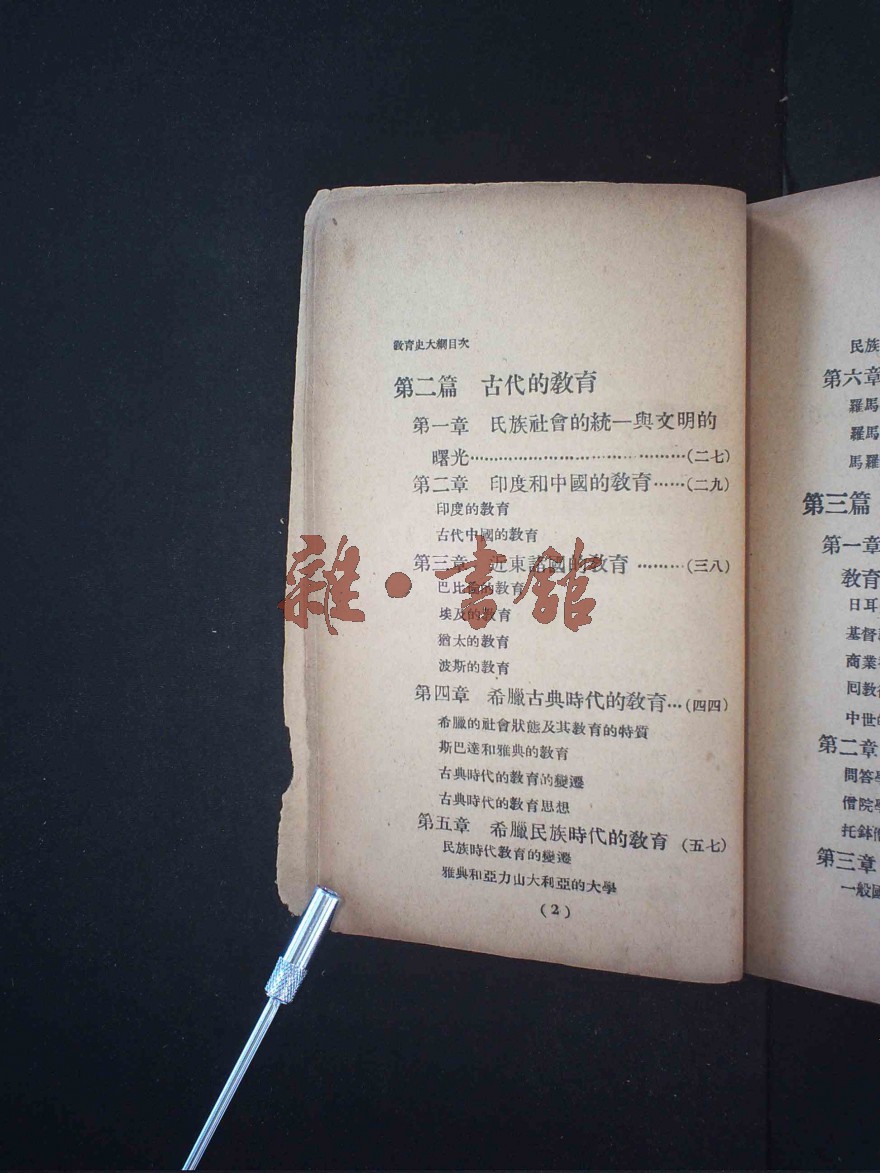 教育史大綱目次
第二篇 古代的教育
第一章 民族社會的統一與文明的
曙光……………………………………(二七)
第二章 印度和中國的教育……(二九)
印度的教育
古代中國的教育
第三章 近東諸國的教育………(三八)
巴比倫的教育
埃及的教育
猶太的教育
波斯的教育
第四章 希臘古典時代的教育…(四四)
希臘的社會狀態及其教育的特質
斯巴達和雅典的教育
古典時代的教育的變遷
古典時代的教育思想
第五章 希臘民族時代的教育 (五七)
民族時代教育的變遷
雅典和亞力山大利亞的大學
(2)
雜·書館
民族
第六章
羅馬
羅馬
馬羅
第三篇
第一章
教育
日耳
基督
商業
回教
中世
第二章
問答學
僧院學
托鉢僧
第三章
一般國